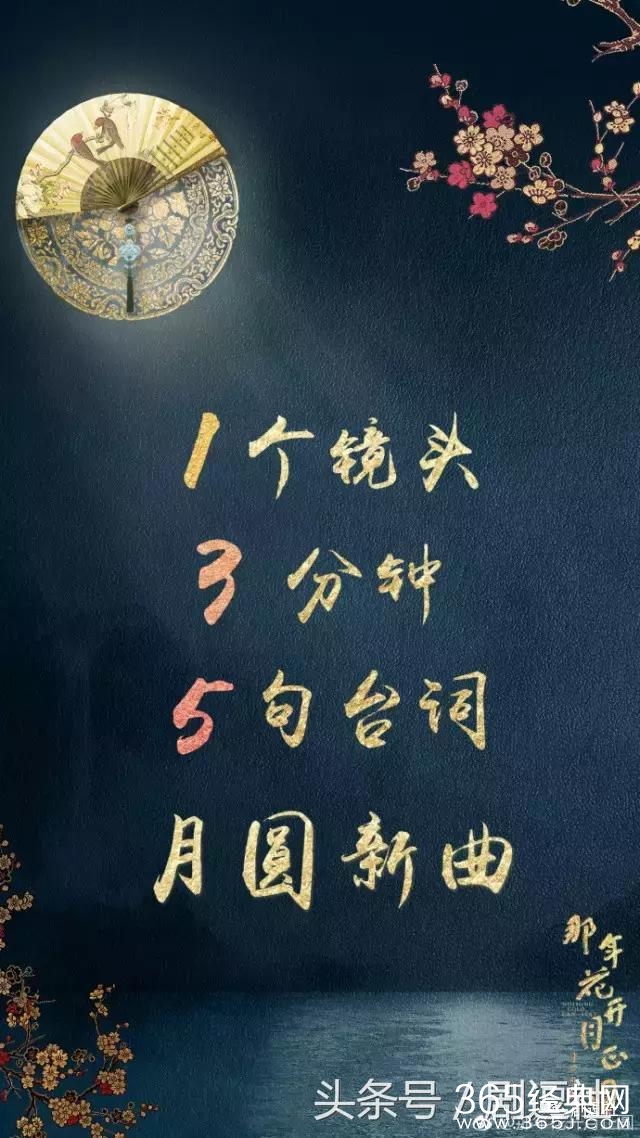 1个镜头
3分钟
5句台词
月圆新曲
那年花开月正
头条号
经典网
www.365j.com